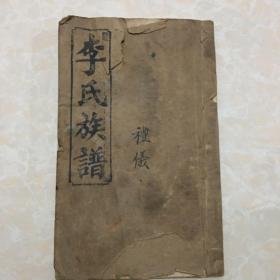 李氏族譜
禮儀